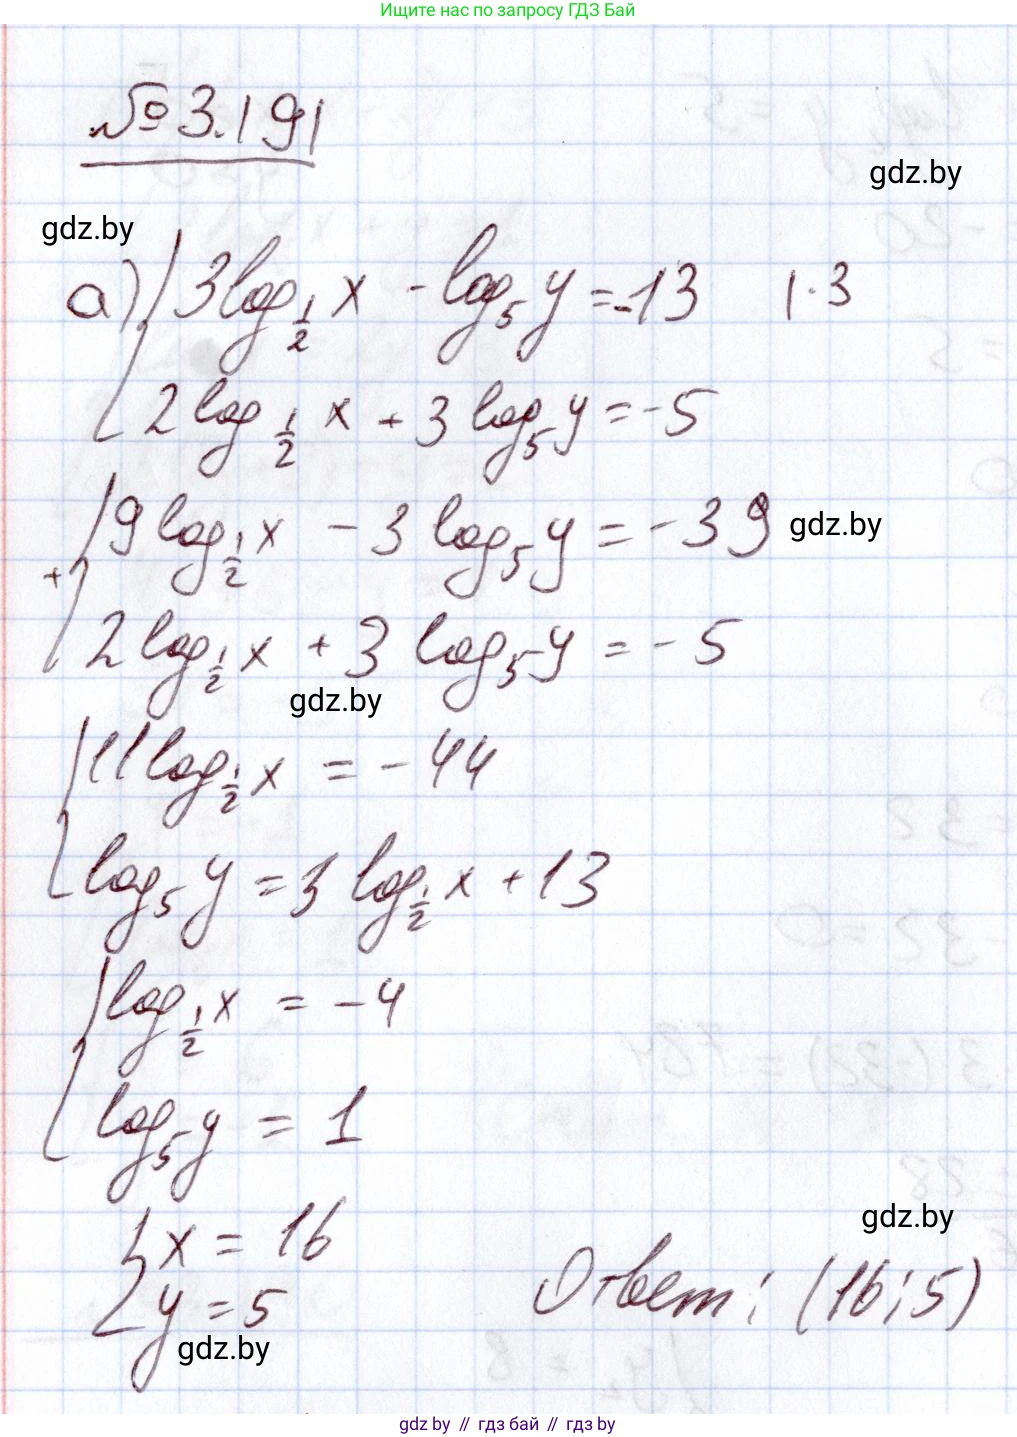 Ищите нас по запросу ГДЗ Бай
№ 3.191
gdz.by
gdz.by
а) { 3log_{1/2} x - log_5 y = -13 | · 3
2 log_{1/2} x + 3 log_5 y = -5
{ 9 log_{1/2} x - 3 log_5 y = -39 gdz.by
+
2 log_{1/2} x + 3 log_5 y = -5
gdz.by
{ 11 log_{1/2} x = -44
log_5 y = 3 log_{1/2} x + 13
{ log_{1/2} x = -4
log_5 y = 1
gdz.by
{ x = 16
y = 5 Ответ: (16; 5)
gdz.by
gdz by // гдз бай // гдз by